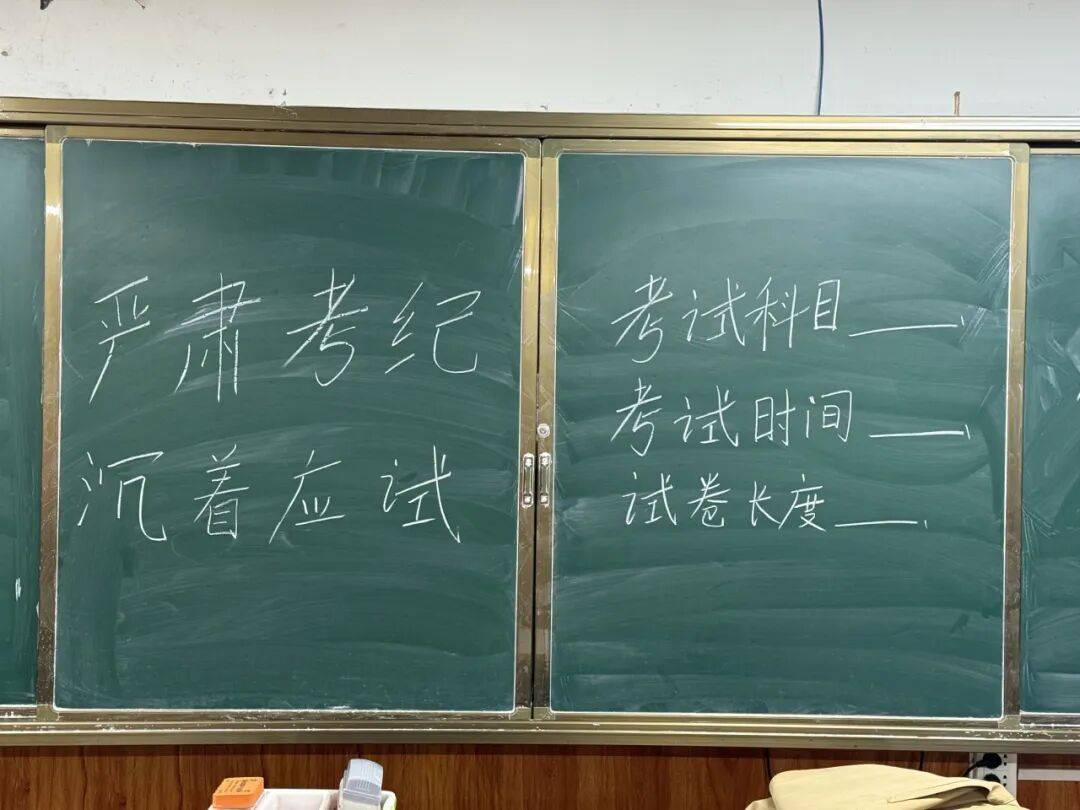 严肃考纪
沉着应试
考试科目____.
考试时间____.
试卷长度____.